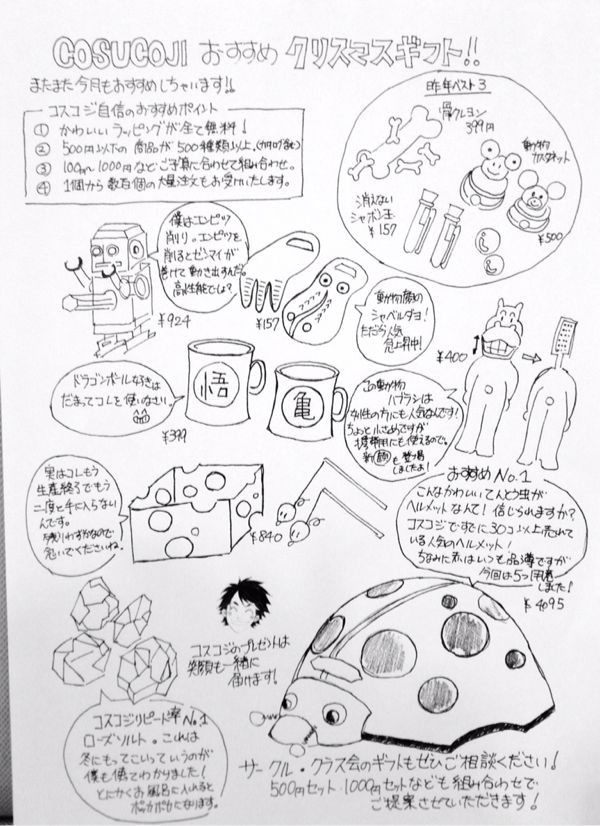 COSUCOJI おすすめ クリスマスギフト!!
またまた今月もおすすめしちゃいます!!
コスコジ自信のおすすめポイント
① かわいいラッピングが全て無料!
② 500円以下の商品が500種類以上。(カタログ含む)
③ 100円〜1000円などご予算に合わせて組み合わせ。
④ 1個から数百個の大量注文もお受けいたします。
昨年ベスト3
骨クレヨン
399円
動物
カスタネット
¥500
消えない
シャボン玉
¥157
僕はエンピツ
削り。エンピツを
削るとゼンマイが
巻けて動き出すんだ。
高性能でしょ?
¥924
¥157
動物顔の
シャベルダヨ!
ただいま人気
急上昇中!
¥400
ドラゴンボール好きは
だまってコレを使いなさい。
悟
亀
¥399
この動物
ハブラシは
女性の方にも人気なんです!
ちょっと小さめですが
携帯用にも使えるので。
新
も登場
しましたよ!
実はコレもう
生産終了でもう
二度と手に入らない
んです。
残りわずかなので
急いでくださいね。
¥840
おすすめ No.1
こんなかわいいてんとう虫が
ヘルメットなんて!信じられますか?
コスコジですでに30コ以上売れて
いる人気のヘルメット!
ちなみに赤はいつも品薄ですが
今回は5つ用意
しました!
¥4095
コスコジのプレゼントは
笑顔も一緒に
届けます!
コスコジリピート率No.1
ローズソルト。これは
冬にもってこいっていうのが
僕も使ってわかりました!
とにかくお風呂に入れると
ポッカポカになります。
サークル・クラス会のギフトもぜひご相談ください!
500円セット・1000円セットなども組み合わせで
ご提案させていただきます!